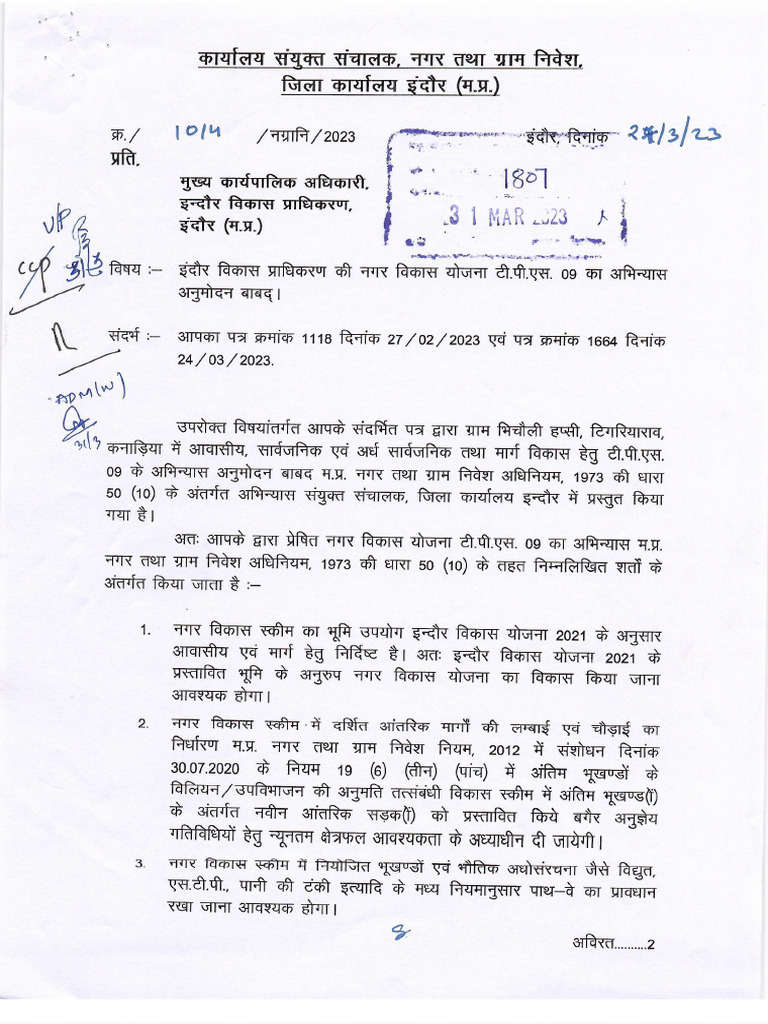 कार्यालय संयुक्त संचालक, नगर तथा ग्राम निवेश,
जिला कार्यालय इंदौर (म.प्र.)
क्र./ 1014 /नग्रानि/2023 इंदौर, दिनांक /3/23
प्रति,
1807
31 MAR 2023
मुख्य कार्यपालिक अधिकारी,
इन्दौर विकास प्राधिकरण,
इंदौर (म.प्र.)
V/P
CCP
विषय :– इंदौर विकास प्राधिकरण की नगर विकास योजना टी.पी.एस. 09 का अभिन्यास
अनुमोदन बाबद्।
संदर्भ :– आपका पत्र क्रमांक 1118 दिनांक 27/02/2023 एवं पत्र क्रमांक 1664 दिनांक
24/03/2023.
ADM(W)
31/3
उपरोक्त विषयांतर्गत आपके संदर्भित पत्र द्वारा ग्राम भिचौली हप्सी, टिगरियाराव,
कनाड़िया में आवासीय, सार्वजनिक एवं अर्ध सार्वजनिक तथा मार्ग विकास हेतु टी.पी.एस.
09 के अभिन्यास अनुमोदन बाबद म.प्र. नगर तथा ग्राम निवेश अधिनियम, 1973 की धारा
50 (10) के अंतर्गत अभिन्यास संयुक्त संचालक, जिला कार्यालय इन्दौर में प्रस्तुत किया
गया है।
अतः आपके द्वारा प्रेषित नगर विकास योजना टी.पी.एस. 09 का अभिन्यास म.प्र.
नगर तथा ग्राम निवेश अधिनियम, 1973 की धारा 50 (10) के तहत निम्नलिखित शर्तो के
अंतर्गत किया जाता है :–
1. नगर विकास स्कीम का भूमि उपयोग इन्दौर विकास योजना 2021 के अनुसार
आवासीय एवं मार्ग हेतु निर्दिष्ट है। अतः इन्दौर विकास योजना 2021 के
प्रस्तावित भूमि के अनुरुप नगर विकास योजना का विकास किया जाना
आवश्यक होगा।
2. नगर विकास स्कीम में दर्शित आंतरिक मार्गों की लम्बाई एवं चौड़ाई का
निर्धारण म.प्र. नगर तथा ग्राम निवेश नियम, 2012 में संशोधन दिनांक
30.07.2020 के नियम 19 (6) (तीन) (पांच) में अंतिम भूखण्डों के
विलियन/उपविभाजन की अनुमति तत्संबंधी विकास स्कीम में अंतिम भूखण्ड(ों)
के अंतर्गत नवीन आंतरिक सड़क(ों) को प्रस्तावित किये बगैर अनुज्ञेय
गतिविधियों हेतु न्यूनतम क्षेत्रफल आवश्यकता के अध्याधीन दी जायेगी।
3. नगर विकास स्कीम में नियोजित भूखण्डों एवं भौतिक अधोसंरचना जैसे विद्युत,
एस.टी.पी., पानी की टंकी इत्यादि के मध्य नियमानुसार पाथ–वे का प्रावधान
रखा जाना आवश्यक होगा।
अविरत..........2